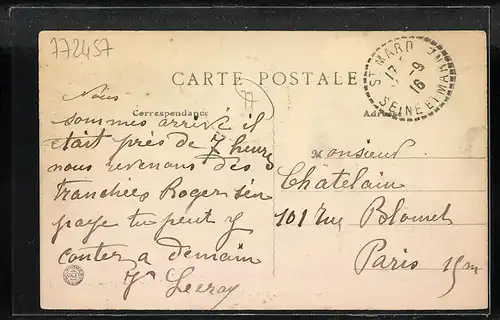 772457
CARTE POSTALE
Correspondance
Adresse
ST MARD
17 - 9
16
SEINE ET MARNE
77
Nous
sommes arrivé il
etait près de 7 heures
nous revenons des
tranchées Roger s'en
paye tu peut y
conter a demain
Leeray
Monsieur
Châtelain
101 rue Blomet
Paris 15m